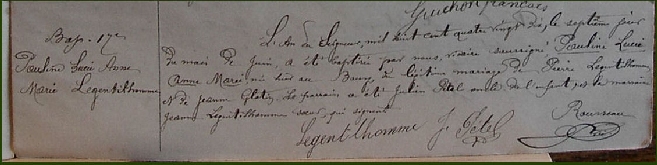 Guichon français
Bap. 17e
Pauline Lucie Anne
Marie Legentilhomme
L'An du Seigneur, mil huit cent quatre vingt dix, le septième jour
du mois de Juin, a été baptisée par nous, vicaire soussigné, Pauline Lucie
Anne Marie, née hier au Bourg, du légitime mariage de Pierre Legentilhomme
et de Jeanne Glatin, Le parrain a été Julien Petel oncle de l'enfant, et la marraine
Jeanne Legentilhomme sœur, qui signent
Legentilhomme J. Petel Rousseau